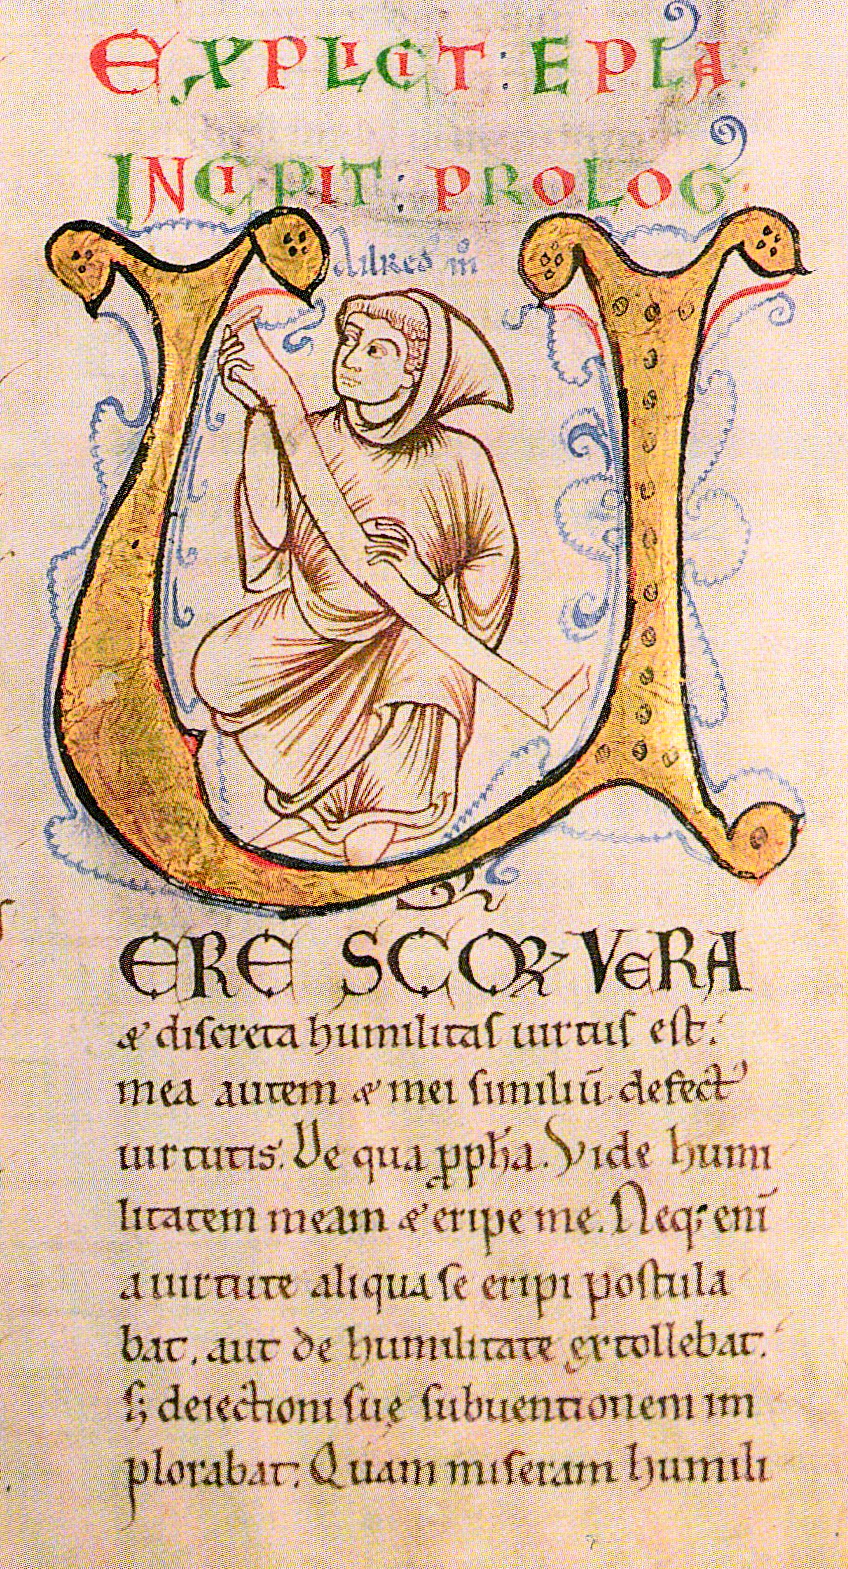 EXPLICIT : EPLA
INCIPIT : PROLOG
Ailred' m̊
UERE SCOꝜ VERA
& discreta humilitas uirtus est.
mea autem & mei similiū defect'
uirtutis. De qua ꝓph̄a. Vide humi
litatem meam & eripe me. Neq; enī
a uirtute aliqua se eripi postula
bat, aut de humilitate extollebat.
s; deiectioni suę subuentionem im
plorabat. Quam miseram humili